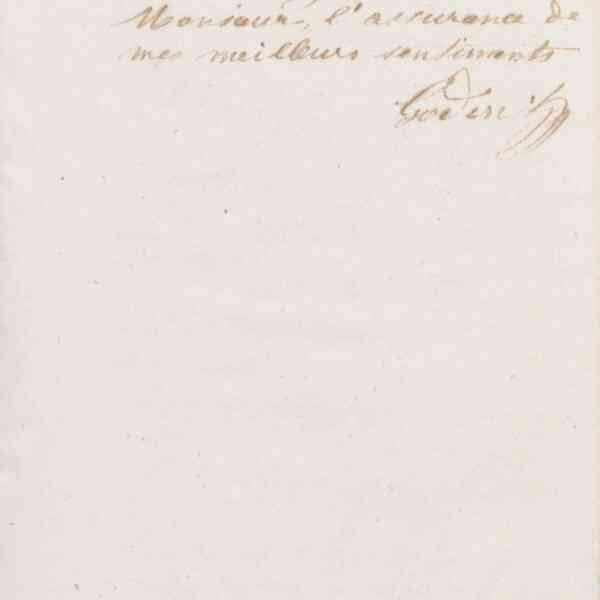 Monsieur, l'assurance de
mes meilleurs sentiments
Godin